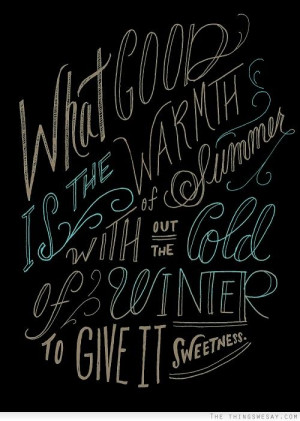 What GOOD
IS THE WARMTH
of Summer
WITH OUT THE Cold
of WINTER
TO GIVE IT SWEETNESS.
THE THINGSWESAY.COM